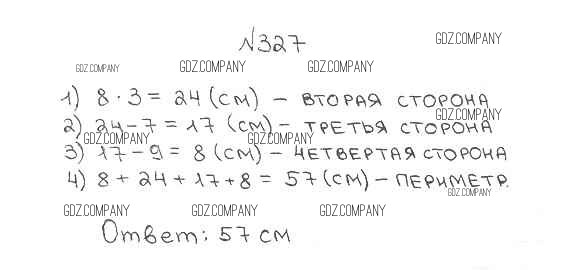 №327
GDZ.COMPANY
GDZ.COMPANY GDZ.COMPANY GDZ.COMPANY
1) 8 · 3 = 24 (см) – ВТОРАЯ СТОРОНА
GDZ.COMPANY
2) 24 – 7 = 17 (см) – ТРЕТЬЯ СТОРОНА
GDZ.COMPANY GDZ.COMPANY
3) 17 – 9 = 8 (см) – ЧЕТВЕРТАЯ СТОРОНА
4) 8 + 24 + 17 + 8 = 57 (см) – ПЕРИМЕТР.
GDZ.COMPANY
GDZ.COMPANY GDZ.COMPANY GDZ.COMPANY
Ответ: 57 см